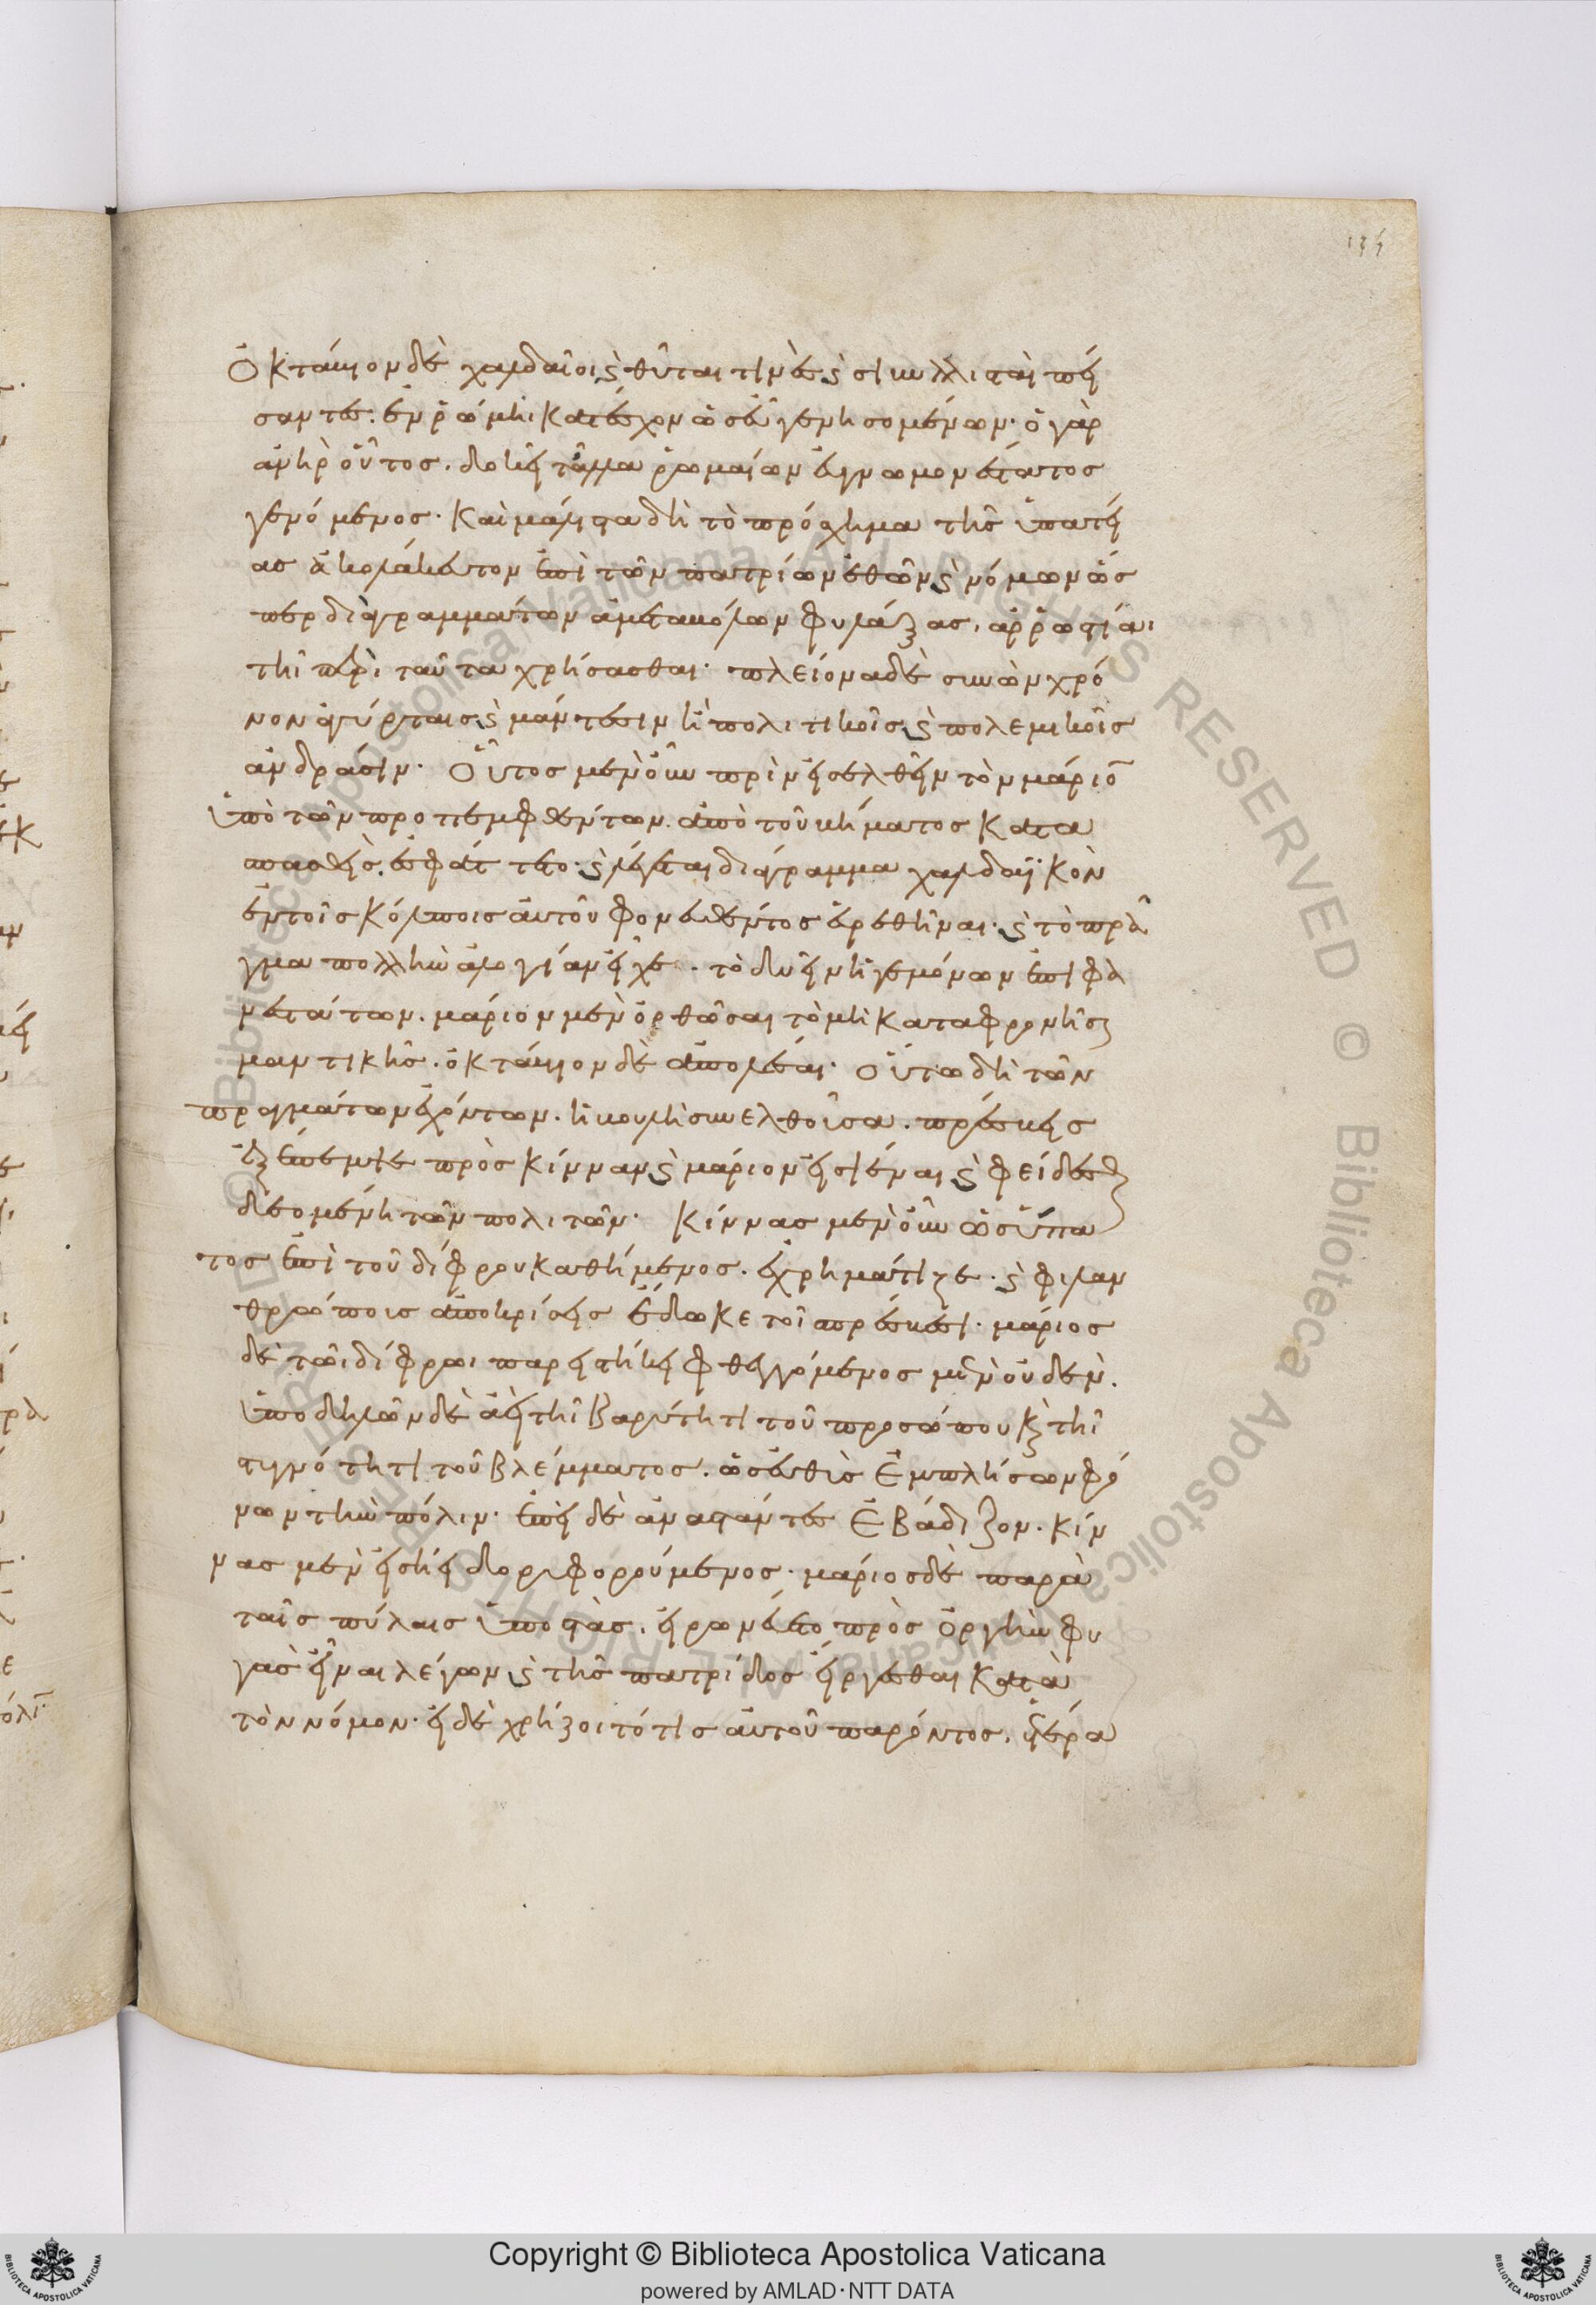 Ὀκτάβιον δὲ χαλδαῖοι καὶ θύται τινὲς καὶ σιβυλλισταὶ πεί
σαντες. ἐν ῥώμηι κατέσχον ὡς εὖ γενησομένων· ὁ γὰρ
ἀνὴρ οὗτος. δοκεῖ τἄλλα ῥωμαίων εὐγνωμονέστατος
γενόμενος· καὶ μάλιστα δὴ τὸ πρόσχημα τῆς ὑπατεί
ας ἀκολάκευτον ἐπὶ τῶν πατρίων ἐθῶν καὶ νόμων ὥσ
περ διαγραμμάτων ἀμεταβόλων φυλάξας, ἀρρωστίαι
τῆι περὶ ταῦτα χρήσασθαι· πλείονα δὲ συνὼν χρό
νον ἀγύρταις καὶ μάντεσιν ἢ πολιτικοῖς καὶ πολεμικοῖς
ἀνδράσιν. Οὗτος μὲν οὖν πρὶν εἰσελθεῖν τὸν μάριον
ὑπὸ τῶν προπεμφθέντων. ἀπὸ τοῦ βήματος κατα
σπασθεὶς. ἐσφάττετο· καὶ λέγεται διάγραμμα χαλδαϊκὸν
ἐν τοῖς κόλποις αὐτοῦ φονευθέντος εὑρεθῆναι· καὶ τὸ πρᾶ
γμα πολλὴν ἀλογίαν εἶχε. τὸ δυεῖν ἡγεμόνων ἐπιφα
νεστάτων. μάριον μὲν ὀρθῶσαι τὸ μὴ καταφρονῆσαι
μαντικῆς. ὀκτάβιον δὲ ἀπολέσαι· Οὕτω δὴ τῶν
πραγμάτων ἐχόντων. ἡ βουλὴ συνελθοῦσα. πρέσβεις
ἐξέπεμψε πρὸς κίνναν καὶ μάριον εἰσιέναι καὶ φείδεσθαι
δεομένη τῶν πολιτῶν· Κίννας μὲν οὖν ὡς ὕπα
τος ἐπὶ τοῦ δίφρου καθήμενος. ἐχρημάτιζε. καὶ φιλαν
θρώποις ἀποκρίσεις ἔδωκε τοῖς πρέσβεσι. μάριος
δὲ τῶι δίφρωι παρειστήκει φθεγγόμενος μὲν οὐδέν.
ὑποδηλῶν δὲ ἀεὶ τῆι βαρύτητι τοῦ προσώπου καὶ τῆι
στυγνότητι τοῦ βλέμματος. ὡς εὐθὺς ἐμπλήσων φό
νων τὴν πόλιν. ἐπεὶ δὲ ἀναστάντες ἐβάδιζον. κίν
νας μὲν εἰσήει δορυφορούμενος. μάριος δὲ παρὰ
ταῖς πύλαις ὑποστὰς. εἰρωνεύετο πρὸς ὀργὴν φυ
γὰς εἶναι λέγων καὶ τῆς πατρίδος εἴργεσθαι κατὰ
τὸν νόμον. εἰ δὲ χρήζοιτό τις αὐτοῦ παρόντος. ἑτέρα
Copyright © Biblioteca Apostolica Vaticana
powered by AMLAD·NTT DATA